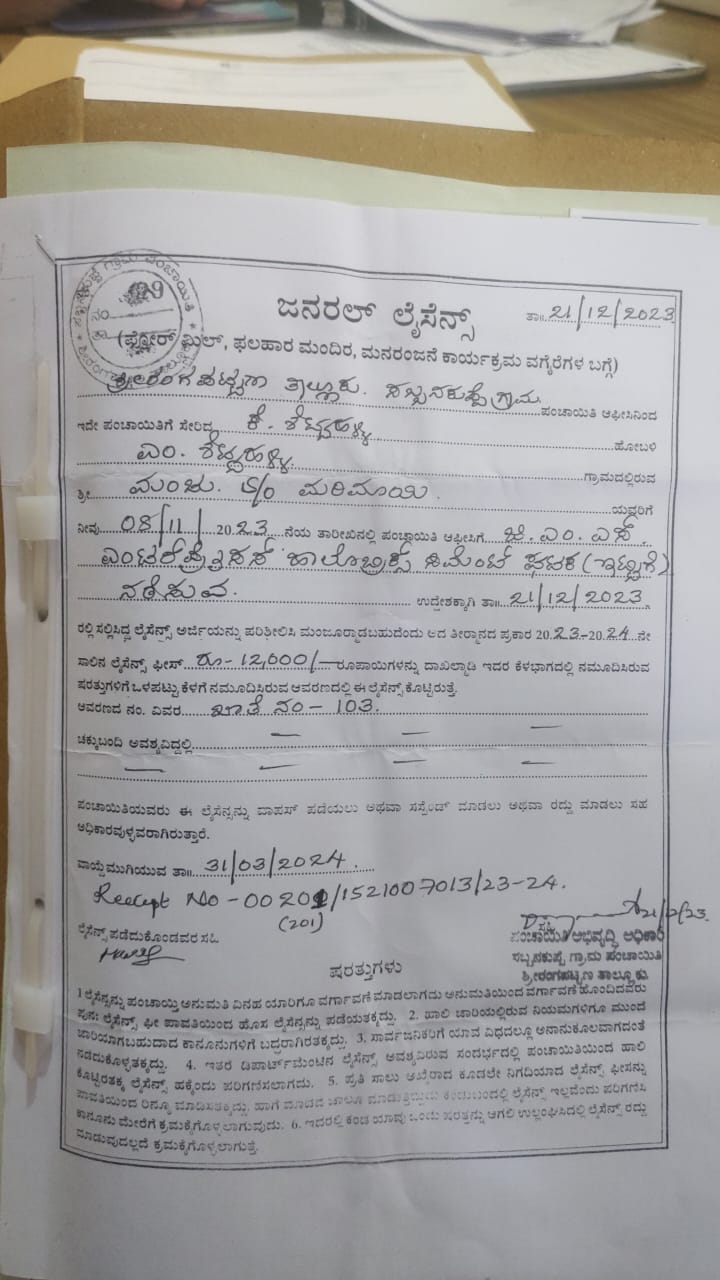 ಸಬ್ಬನಕುಪ್ಪೆ ಗ್ರಾಮ ಪಂಚಾಯಿತಿ
ನಂ 29
ಜನರಲ್ ಲೈಸೆನ್ಸ್
ತಾ॥ 21/12/2023
(ಫ್ಲೋರ್ ಮಿಲ್, ಫಲಹಾರ ಮಂದಿರ, ಮನರಂಜನೆ ಕಾರ್ಯಕ್ರಮ ವಗೈರೆಗಳ ಬಗ್ಗೆ)
ಶ್ರೀರಂಗಪಟ್ಟಣ ತಾಲ್ಲೂಕು. ಸಬ್ಬನಕುಪ್ಪೆ ಗ್ರಾಮ ಪಂಚಾಯಿತಿ ಆಫೀಸಿನಿಂದ
ಇದೇ ಪಂಚಾಯಿತಿಗೆ ಸೇರಿದ ಕೆ. ಶೆಟ್ಟಹಳ್ಳಿ ಹೋಬಳಿ
ಎಂ. ಶೆಟ್ಟಹಳ್ಳಿ ಗ್ರಾಮದಲ್ಲಿರುವ
ಶ್ರೀ ಮಂಜು. S/o ಮರಿಮಾಯಿ. ಯವರಿಗೆ
ನೀವು 08/11/2023 ನೆಯ ತಾರೀಖಿನಲ್ಲಿ ಪಂಚಾಯಿತಿ ಆಫೀಸಿಗೆ ಜಿ.ಎಂ.ಎಸ್
ಎಂಟರ್‌ಪ್ರೈಸಸ್ ಹಾಲೋಬ್ರಿಕ್ಸ್ ಸಿಮೆಂಟ್ ಘಟಕ (ಇಟ್ಟಿಗೆ)
ನಡೆಸುವ. ಉದ್ದೇಶಕ್ಕಾಗಿ ತಾ॥ 21/12/2023
ರಲ್ಲಿ ಸಲ್ಲಿಸಿದ್ದ ಲೈಸೆನ್ಸ್ ಅರ್ಜಿಯನ್ನು ಪರಿಶೀಲಿಸಿ ಮಂಜೂರ್ಮಾಡಬಹುದೆಂದು ಆದ ತೀರ್ಮಾನದ ಪ್ರಕಾರ 2023-2024 ನೇ
ಸಾಲಿನ ಲೈಸೆನ್ಸ್ ಫೀಸ್ ರೂ-12,000/- ರೂಪಾಯಿಗಳನ್ನು ದಾಖಲ್ಮಾಡಿ ಇದರ ಕೆಳಭಾಗದಲ್ಲಿ ನಮೂದಿಸಿರುವ
ಷರತ್ತುಗಳಿಗೆ ಒಳಪಟ್ಟು ಕೆಳಗೆ ನಮೂದಿಸಿರುವ ಆವರಣದಲ್ಲಿ ಈ ಲೈಸೆನ್ಸ್ ಕೊಟ್ಟಿರುತ್ತೆ.
ಆವರಣದ ನಂ. ವಿವರ ಖಾತೆ ನಂ-103.
ಚಕ್ಕುಬಂದಿ ಅವಶ್ಯವಿದ್ದಲ್ಲಿ
ಪಂಚಾಯಿತಿಯವರು ಈ ಲೈಸೆನ್ಸನ್ನು ವಾಪಸ್ ಪಡೆಯಲು ಅಥವಾ ಸಸ್ಪೆಂಡ್ ಮಾಡಲು ಅಥವಾ ರದ್ದು ಮಾಡಲು ಸಹ
ಅಧಿಕಾರವುಳ್ಳವರಾಗಿರುತ್ತಾರೆ.
ವಾಯ್ದೆಮುಗಿಯುವ ತಾ॥ 31/03/2024.
Receipt No - 00201/1521007013/23-24.
(201)
21/12/23.
ಲೈಸೆನ್ಸ್ ಪಡೆದುಕೊಂಡವರ ಸಹಿ
ಪಂಚಾಯಿತಿ ಅಭಿವೃದ್ಧಿ ಅಧಿಕಾರಿ
ಸಬ್ಬನಕುಪ್ಪೆ ಗ್ರಾಮ ಪಂಚಾಯಿತಿ
ಶ್ರೀರಂಗಪಟ್ಟಣ ತಾಲ್ಲೂಕು.
ಷರತ್ತುಗಳು
1 ಲೈಸೆನ್ಸನ್ನು ಪಂಚಾಯ್ತಿ ಅನುಮತಿ ವಿನಹ ಯಾರಿಗೂ ವರ್ಗಾವಣೆ ಮಾಡಲಾಗದು ಅನುಮತಿಯಿಂದ ವರ್ಗಾವಣೆ ಹೊಂದಿದವರು
ಪುನಃ ಲೈಸೆನ್ಸ್ ಫೀ ಪಾವತಿಯಿಂದ ಹೊಸ ಲೈಸೆನ್ಸನ್ನು ಪಡೆಯತಕ್ಕದ್ದು. 2. ಹಾಲಿ ಜಾರಿಯಲ್ಲಿರುವ ನಿಯಮಗಳಿಗೂ ಮುಂದೆ
ಜಾರಿಯಾಗಬಹುದಾದ ಕಾನೂನುಗಳಿಗೆ ಬದ್ಧರಾಗಿರತಕ್ಕದ್ದು. 3. ಸಾರ್ವಜನಿಕರಿಗೆ ಯಾವ ವಿಧದಲ್ಲೂ ಅನಾನುಕೂಲವಾಗದಂತೆ
ನಡೆದುಕೊಳ್ಳತಕ್ಕದ್ದು. 4. ಇತರೆ ಡಿಪಾರ್ಟ್‌ಮೆಂಟಿನ ಲೈಸೆನ್ಸ್ ಅವಶ್ಯವಿರುವ ಸಂದರ್ಭದಲ್ಲಿ ಪಂಚಾಯಿತಿಯಿಂದ ಹಾಲಿ
ಕೊಟ್ಟಿರತಕ್ಕ ಲೈಸೆನ್ಸ್ ಹಕ್ಕೆಂದು ಪರಿಗಣಿಸಲಾಗದು. 5. ಪ್ರತಿ ಸಾಲು ಆಖೈರಾದ ಕೂಡಲೇ ನಿಗದಿಯಾದ ಲೈಸೆನ್ಸ್ ಫೀಸನ್ನು
ಪಾವತಿಯಿಂದ ರಿನ್ಯೂ ಮಾಡಿಸತಕ್ಕದ್ದು; ಹಾಗೆ ಮಾಡದೆ ಚಾಲೂ ಮಾಡುತ್ತಿರುವುದು ಕಂಡುಬಂದಲ್ಲಿ ಲೈಸೆನ್ಸ್ ಇಲ್ಲವೆಂದು ಪರಿಗಣಿಸಿ
ಕಾನೂನು ಮೇರೆಗೆ ಕ್ರಮಕೈಗೊಳ್ಳಲಾಗುವುದು. 6. ಇದರಲ್ಲಿ ಕಂಡ ಯಾವು ಒಂದು ಷರತ್ತನ್ನು ಆಗಲಿ ಉಲ್ಲಂಘಿಸಿದಲ್ಲಿ ಲೈಸೆನ್ಸ್ ರದ್ದು
ಮಾಡುವುದಲ್ಲದೆ ಕ್ರಮಕೈಗೊಳ್ಳಲಾಗುತ್ತೆ.